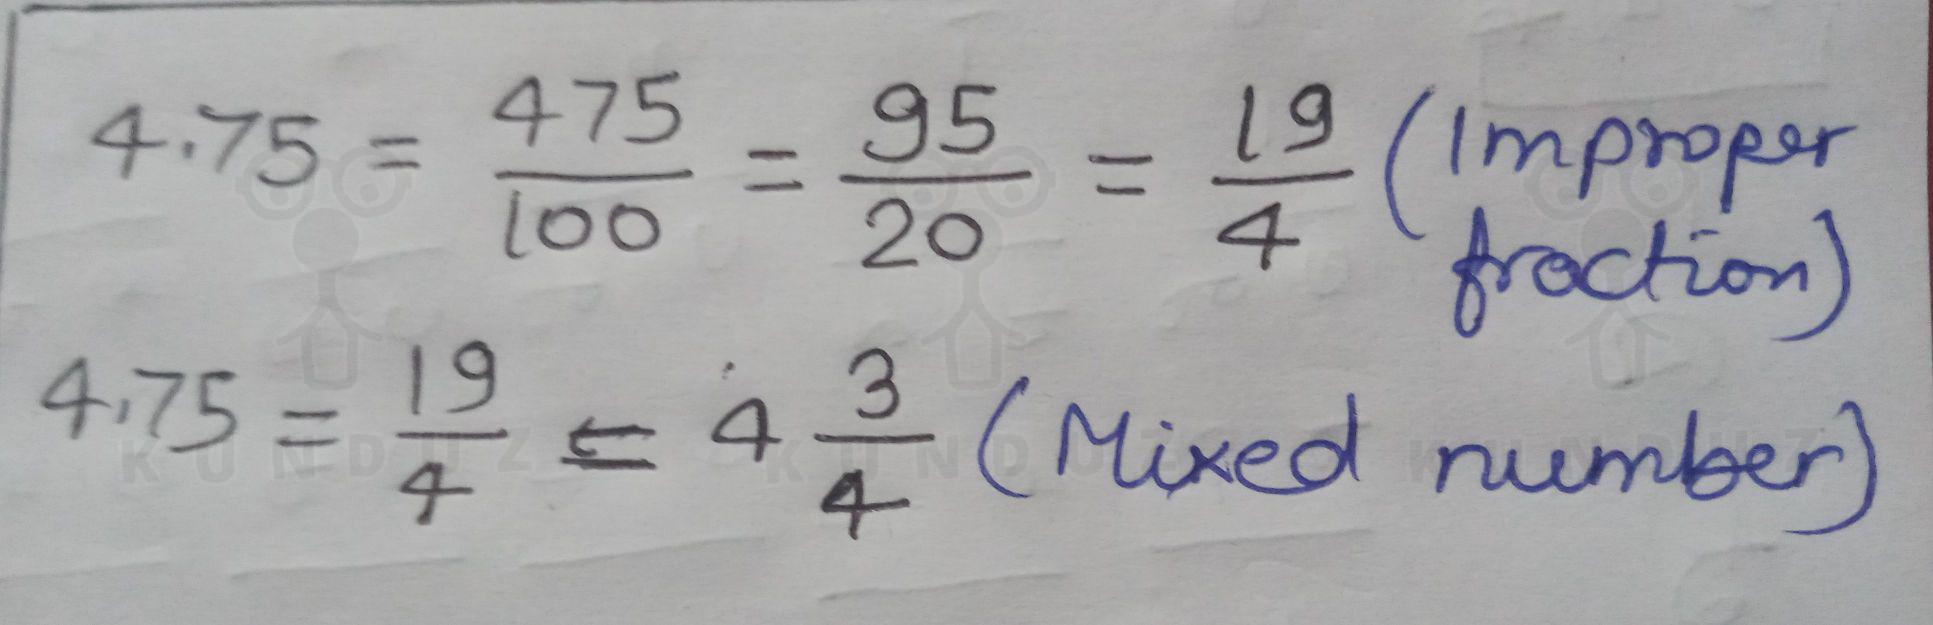 4.75 = 475/100 = 95/20 = 19/4 (Improper
fraction)
4.75 = 19/4 = 4 3/4 (Mixed number)
KUNDUZ KUNDUZ KUNDUZ